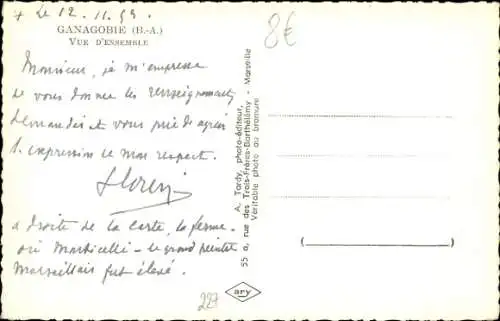 Le 12.11.53.
GANAGOBIE (B.-A.)
VUE D'ENSEMBLE
8€
Monsieur, je m'empresse
de vous donner les renseignements
demandés et vous prie de agréer
l'expression de mon respect.
à droite de la carte, la ferme
où Monticelli - le grand peintre
Marseillais fut élevé.
A. Tardy, photo-éditeur,
55 a, rue des Trois-Frères-Barthélémy - Marseille
Véritable photo au bromure
227
ary